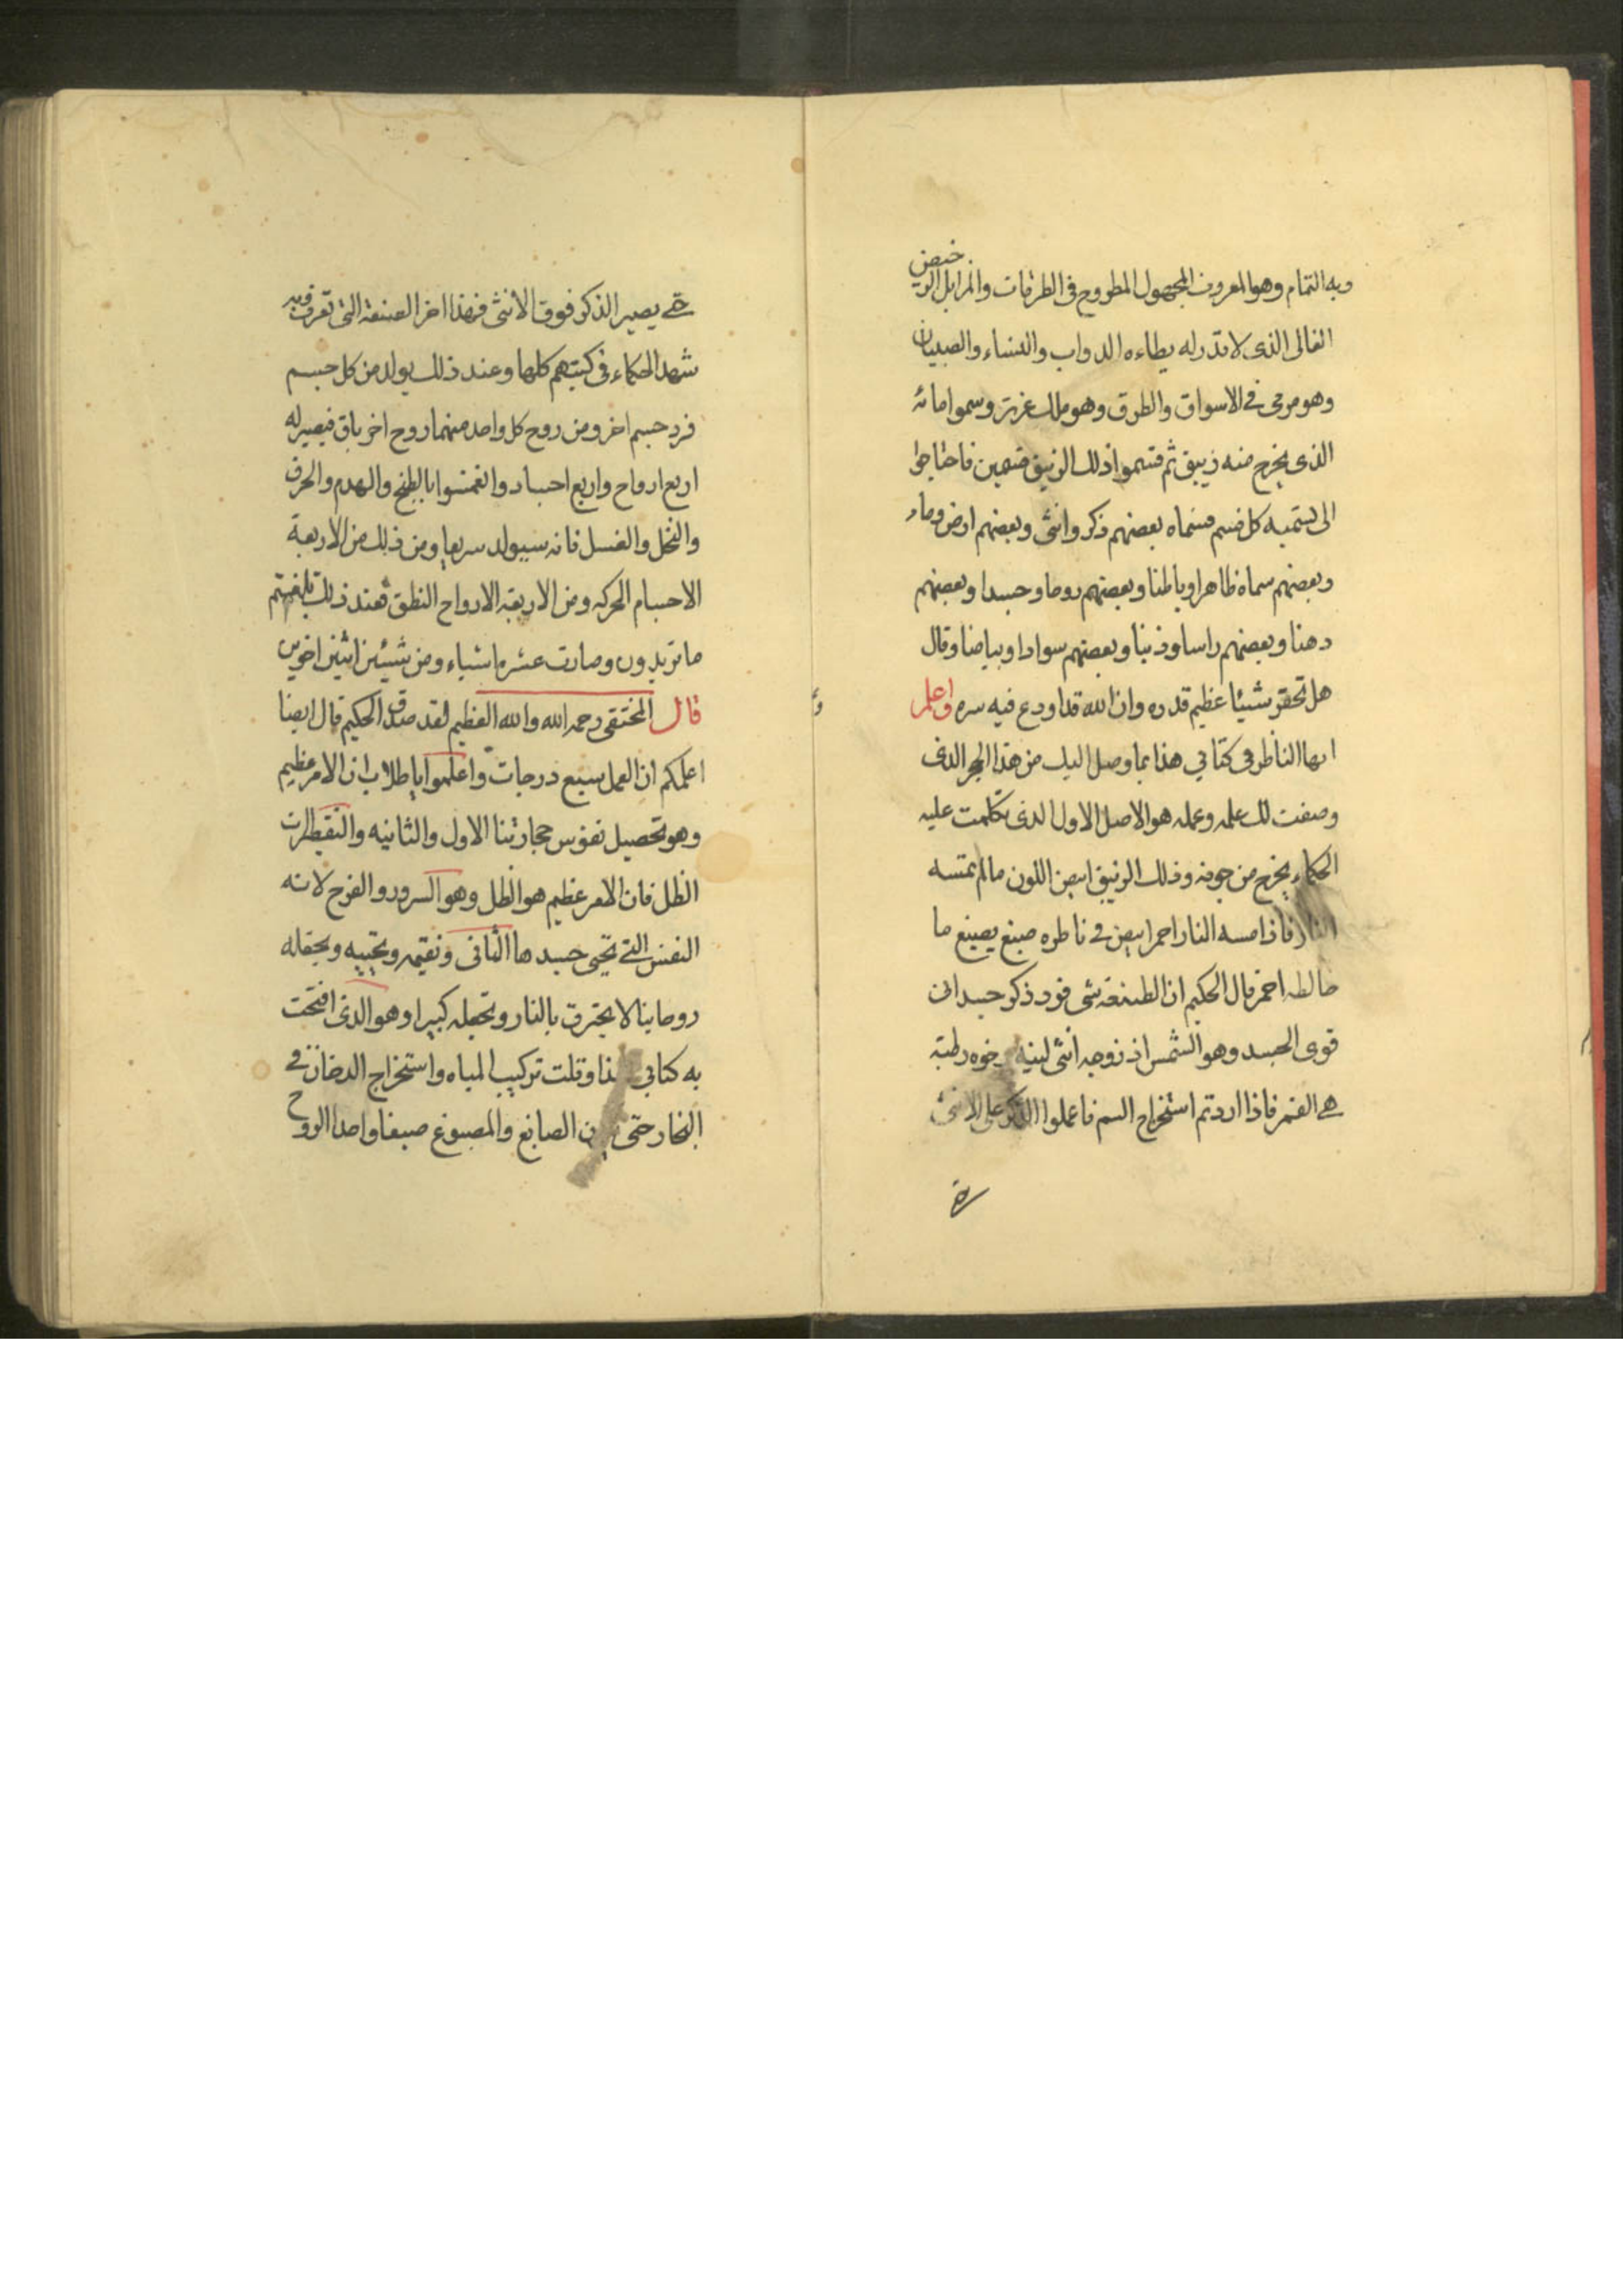 وبه التمام وهو المعروف المجهول المطروح فى الطرقات والمزابل الرخيص
الغالى الذى لا قدر له يطاءه الدواب والنساء والصبيان
وهو مرمى فى الاسواق والطرق وهو ملك عزيز وسموا مائه
الذى يخرج منه زيبق ثم قسموا ذلك الزيبق قسمين فاحتاجوا
الى تسميه كل قسم فسماه بعضهم ذكر وانثى وبعضهم ارض وماء
وبعضهم سماه ظاهرا وباطنا وبعضهم روحا وجسدا وبعضهم
دهنا وبعضهم راسا وذنبا وبعضهم سوادا وبياضا وقال
هل تحقر شيئا عظيم قدره وان الله قد اودع فيه سره واعلم
ايها الناظر فى كتابي هذا بما وصل اليك من هذا الحجر الذى
وصفت لك علمه وعمله هو الاصل الاول الذى تكلمت عليه
الحكماء يخرج من جوفه وذلك الزيبق ابيض اللون ما لم تمسه
النار فاذا مسه النار احمر ابيض فى ناظره صبغ يصبغ ما
خالطه احمر قال الحكيم ان الطبيعه شى فرد ذكر جسدانى
قوى الجسد وهو الشمس اذ زوجه انثى لينه رخوه رطبة
هى القمر فاذا اردتم استخراج السم فاعلوا الذكر على الانثى
حتى يصير الذكر فوق الانثى فهذا اخر الصنعة التى تعرف وبه
شهد الحكماء فى كتبهم كلها وعند ذلك يولد من كل جسم
فرد جسم اخر ومن روح كل واحد منهما روح اخر باق فيصير له
اربع ارواح واربع اجساد وانغمسوا بالطبخ والهدم والحرق
والنخل والغسل فانه سيولد سريعا ومن ذلك من الاربعة
الاجسام الحركه ومن الاربعة الارواح النطق فعند ذلك بلغتم
ما تريدون وصارت عشره اشياء ومن شيئين اثنين اخوين
قال المختفى رحمه الله والله العظيم لقد صدق الحكيم قال ايضا
اعلمكم ان العمل سبع درجات واعلموا يا طلاب ان الامر عظيم
وهو تحصيل نفوس حجارتنا الاول والثانيه والتقطرت
الظل فان الامر عظيم هو الظل وهو السرور والفرح لانه
النفس التى تحيى جسدها الثانى ونقيمه وتجيبه ويجعله
روحانيا لا يحترق بالنار وتجعله كبيرا وهو الذى افتحت
به كتابي هذا وقلت تركيب المياه واستخراج الدخان فى
البخار حتى الصابغ والمصبوغ صبغا واحدا الروح